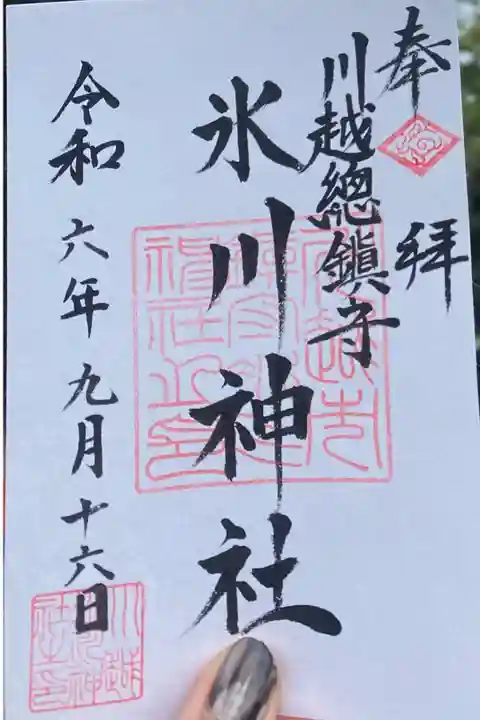 奉拜
川越總鎮守
氷川神社
令和六年九月十六日